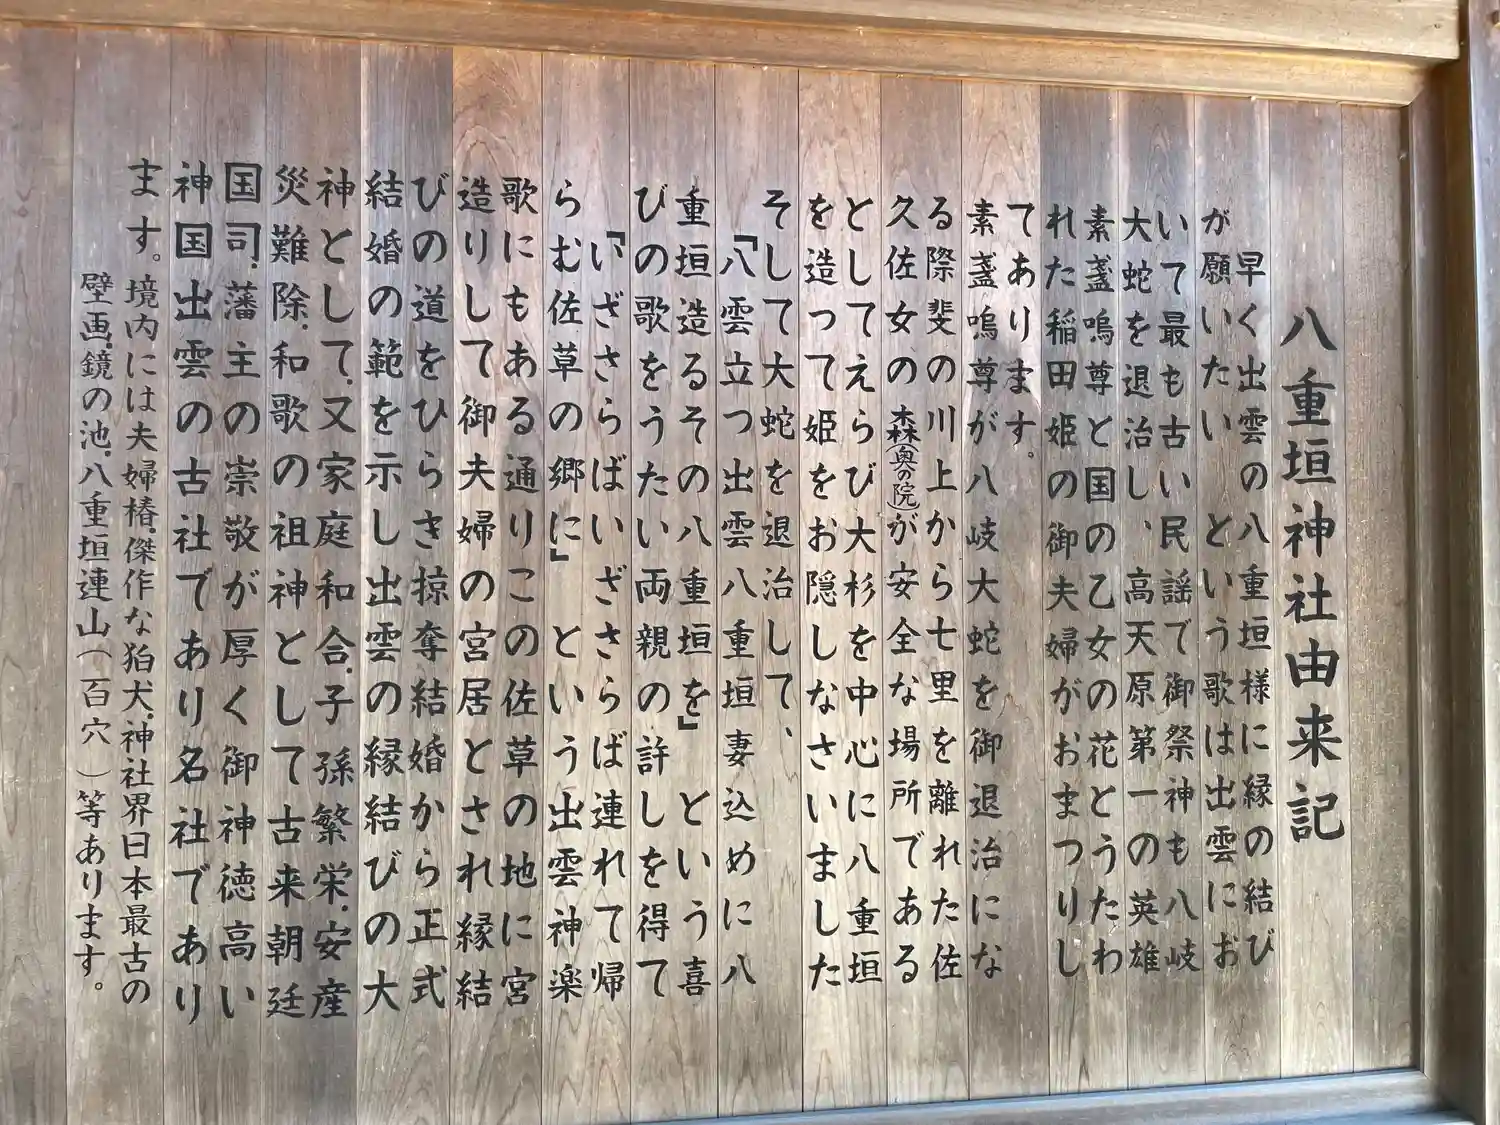 八重垣神社由来記
早く出雲の八重垣様に縁の結び
が願いたい　という歌は出雲にお
いて最も古い民謡で御祭神も八岐
大蛇を退治し、高天原第一の英雄
素盞嗚尊と国の乙女の花とうたわ
れた稲田姫の御夫婦がおまつりし
てあります。
素盞嗚尊が八岐大蛇を御退治にな
る際斐の川上から七里を離れた佐
久佐女の森(奥の院)が安全な場所である
としてえらび大杉を中心に八重垣
を造つて姫をお隠しなさいました
そして大蛇を退治して、
「八雲立つ出雲八重垣妻込めに八
重垣造るその八重垣を」という喜
びの歌をうたい両親の許しを得て
「いざさらばいざさらば連れて帰
らむ佐草の郷に」という出雲神楽
歌にもある通りこの佐草の地に宮
造りして御夫婦の宮居とされ縁結
びの道をひらき掠奪結婚から正式
結婚の範を示し出雲の縁結びの大
神として、又家庭和合、子孫繁栄、安産
災難除、和歌の祖神として古来朝廷
国司、藩主の崇敬が厚く御神徳高い
神国出雲の古社であり名社であり
ます。境内には夫婦椿、傑作な狛犬、神社界日本最古の
壁画、鏡の池、八重垣連山（百穴）等あります。